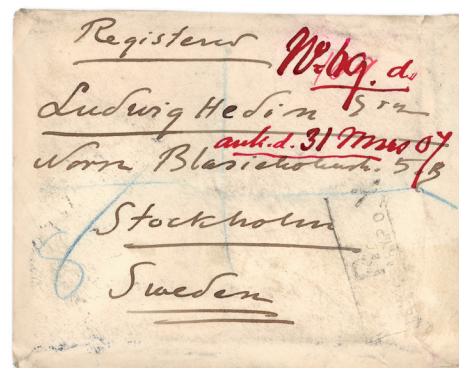 Registered
No 69. d.
Ludwig Hedin
ank. d. 31 Mars 07
Norra Blasieholmsh. 5B
Stockholm
Sweden